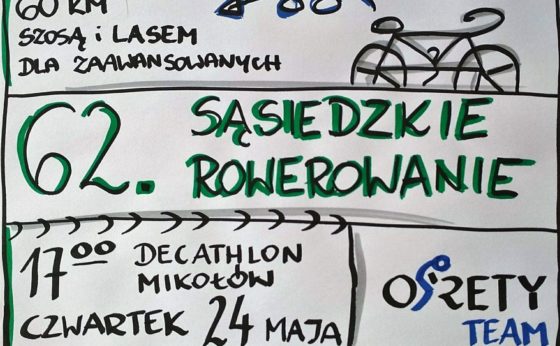 60 KM
SZOSĄ i LASEM
DLA ZAAWANSOWANYCH
62. SĄSIEDZKIE
ROWEROWANIE
17⁰⁰ DECATHLON
MIKOŁÓW
CZWARTEK 24 MAJA
OŚRETY
TEAM